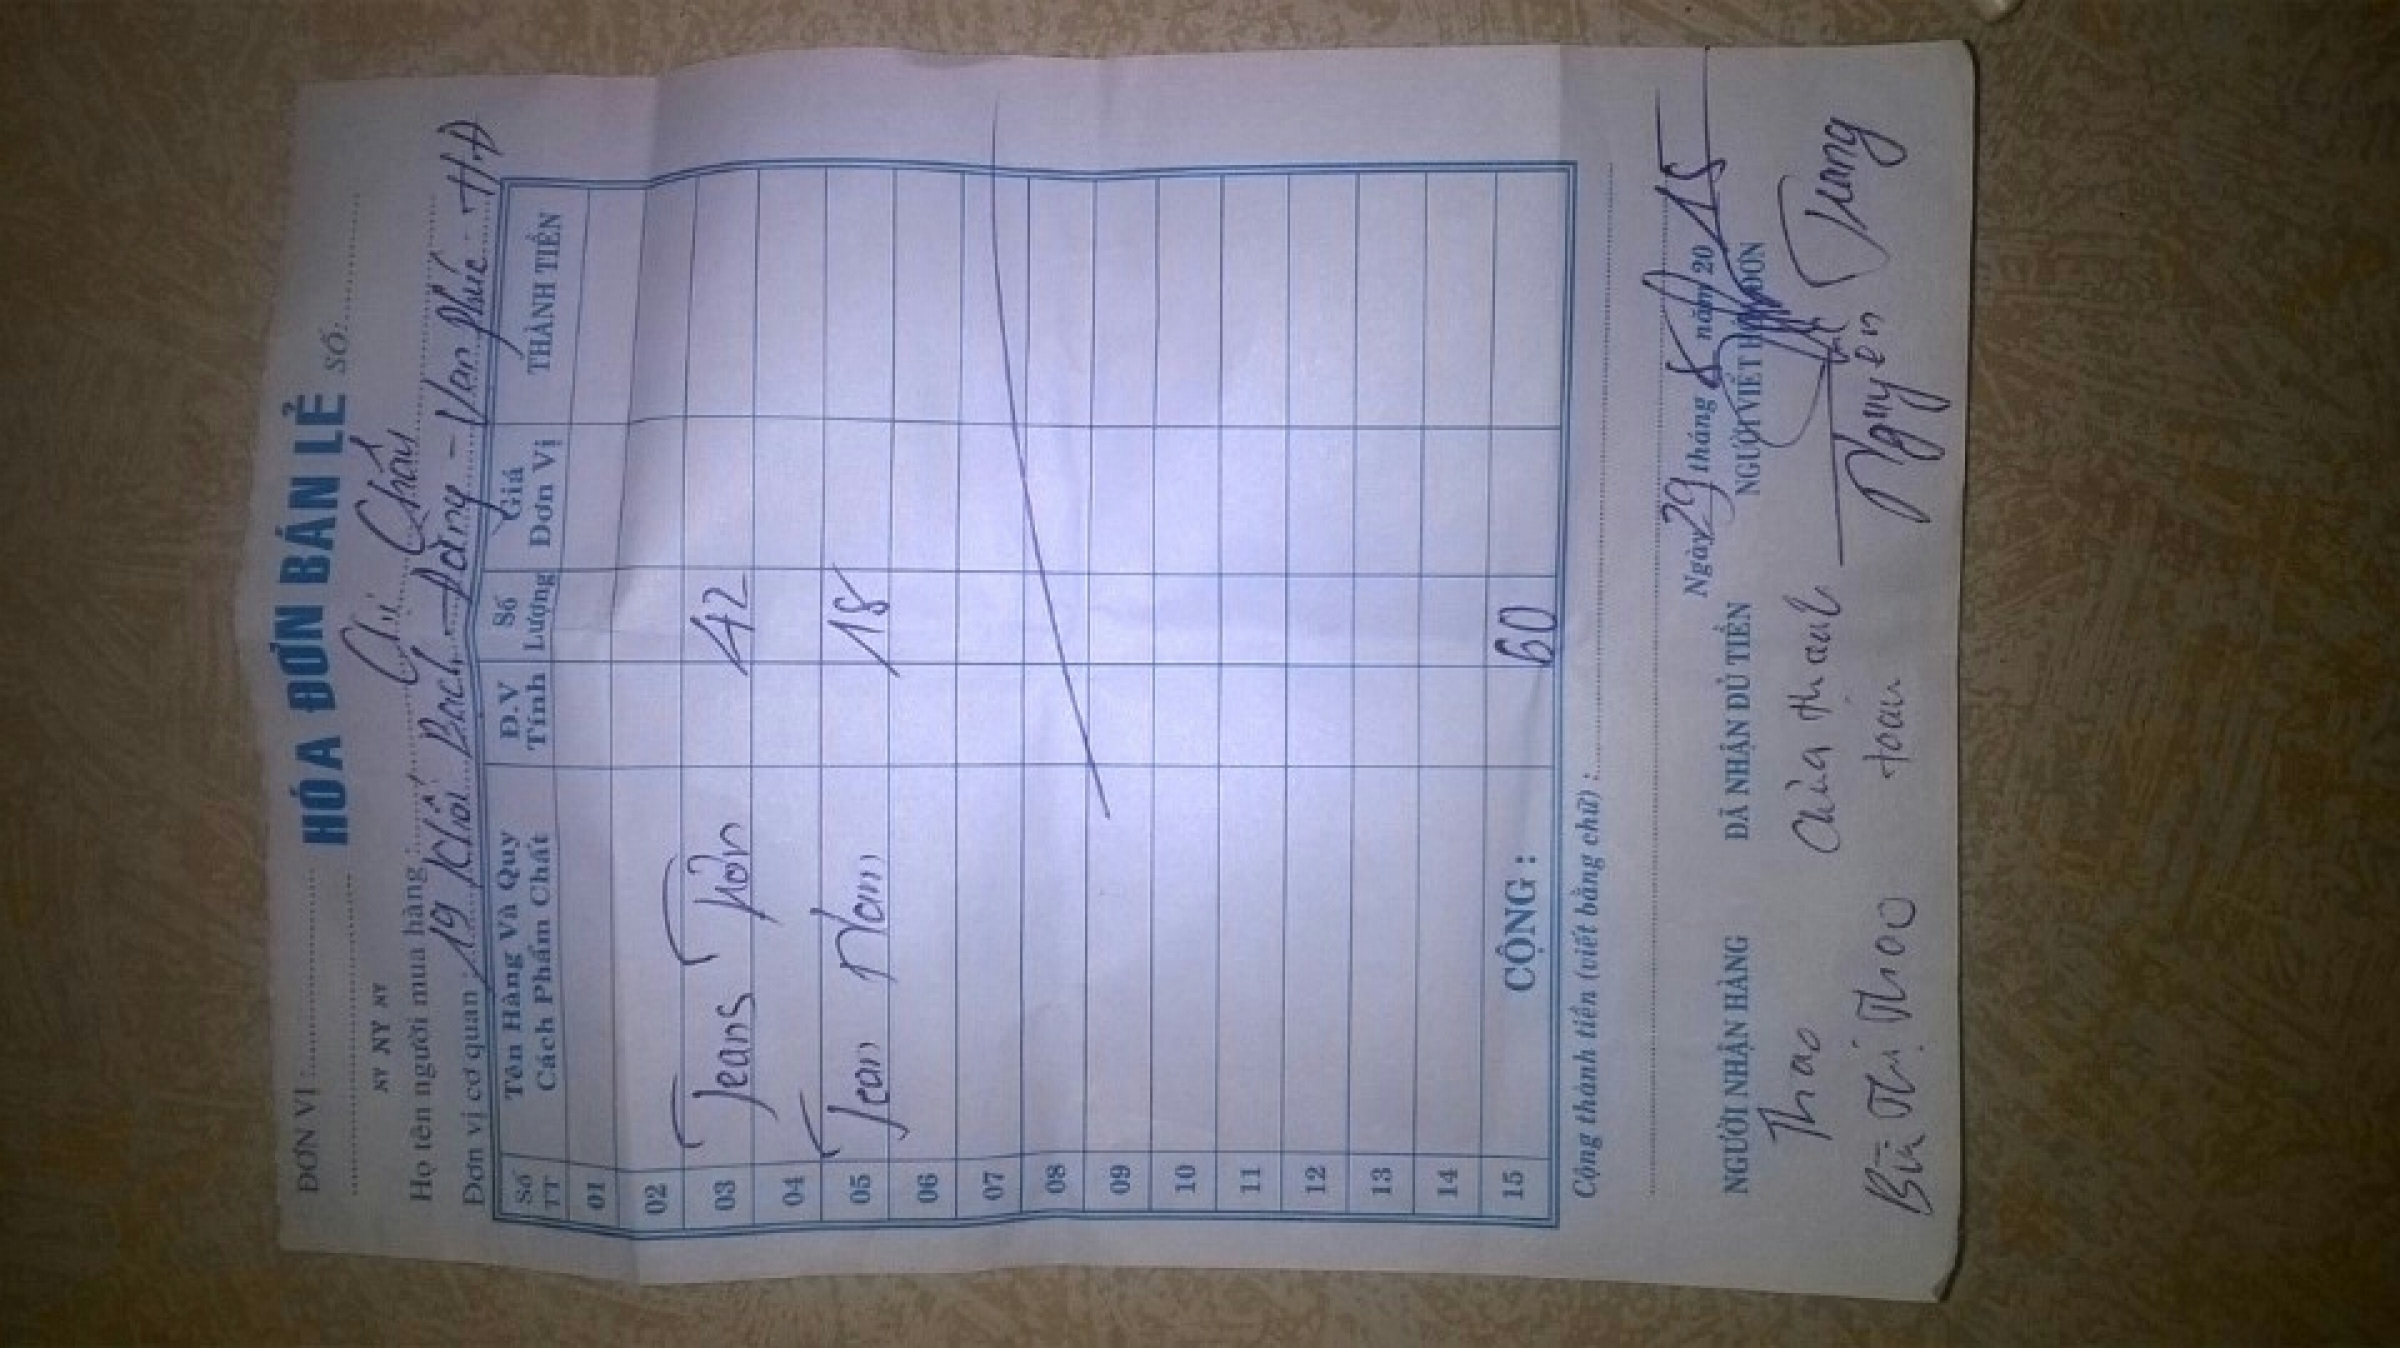 ĐƠN VỊ :
HÓA ĐƠN BÁN LẺ
SỐ:
NY NY NY
Họ tên người mua hàng : Chị Châu
Đơn vị cơ quan 19 Khối Bạch Đằng - Vạn Phúc - HĐ
Số TT Tên Hàng Và Quy Cách Phẩm Chất Đ.V Tính Số Lượng Giá Đơn Vị THÀNH TIỀN
01
02
03 Jeans Trơn 42
04
05 Jean Nam 18
06
07
08
09
10
11
12
13
14
15 CỘNG : 60
Cộng thành tiền (viết bằng chữ) :
Ngày 29 tháng 8 năm 2015
NGƯỜI NHẬN HÀNG ĐÃ NHẬN ĐỦ TIỀN NGƯỜI VIẾT HÓA ĐƠN
Thao chưa thanh
toán
Bùi Thị Thoo Nguyên Trang